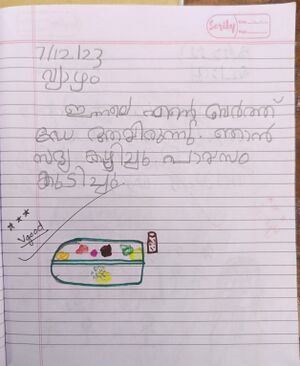 Scribly
7/12/23
വ്യാഴം
ഇന്നലെ എന്റെ ബർത്ത്
ഡേ ആയിരുന്നു. ഞാൻ
സദ്യ കഴിച്ചു. പായസം
കുടിച്ചു.
V good